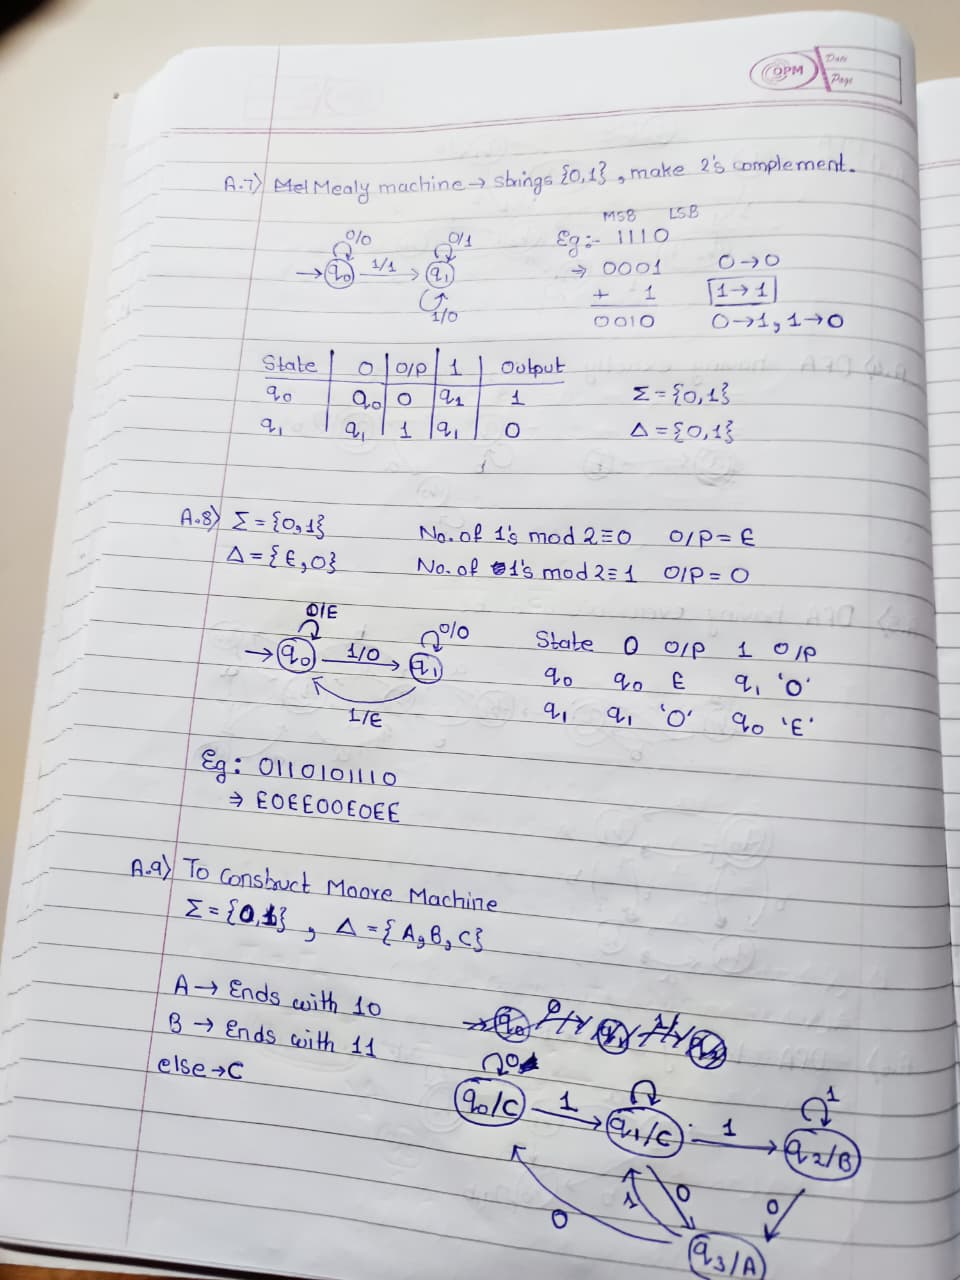 OPM
Date
Page
A.7) Mealy machine → strings {0,1}, make 2's complement.
MSB LSB
Eg:- 1110
⇒ 0001
+ 1
0010
0→0
1→1
0→1, 1→0
0/0 0/1
q0 1/1 q1
1/0
State 0 O/P 1 Output
q0 q0 0 q1 1
q1 q1 1 q1 0
Σ = {0,1}
Δ = {0,1}
A.8) Σ = {0,1} No. of 1's mod 2 ≡ 0 O/P = E
Δ = {E,O} No. of 1's mod 2 ≡ 1 O/P = O
0/E 0/O
q0 1/O q1
1/E
State 0 O/P 1 O/P
q0 q0 E q1 'O'
q1 q1 'O' q0 'E'
Eg: 0110101110
⇒ EOEEOOEOEE
A.9) To construct Moore Machine
Σ = {0,1}, Δ = {A,B,C}
A → Ends with 10
B → Ends with 11
else → C
0 1
q0/C 1 q1/C 1 q2/B
0 1 0 0
q3/A